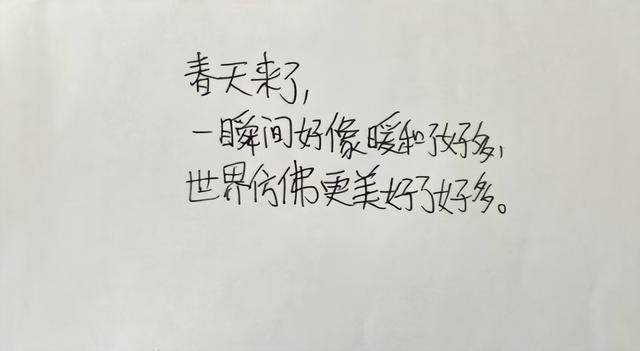 春天来了，
一瞬间好像暖和了好多，
世界仿佛更美好了好多。